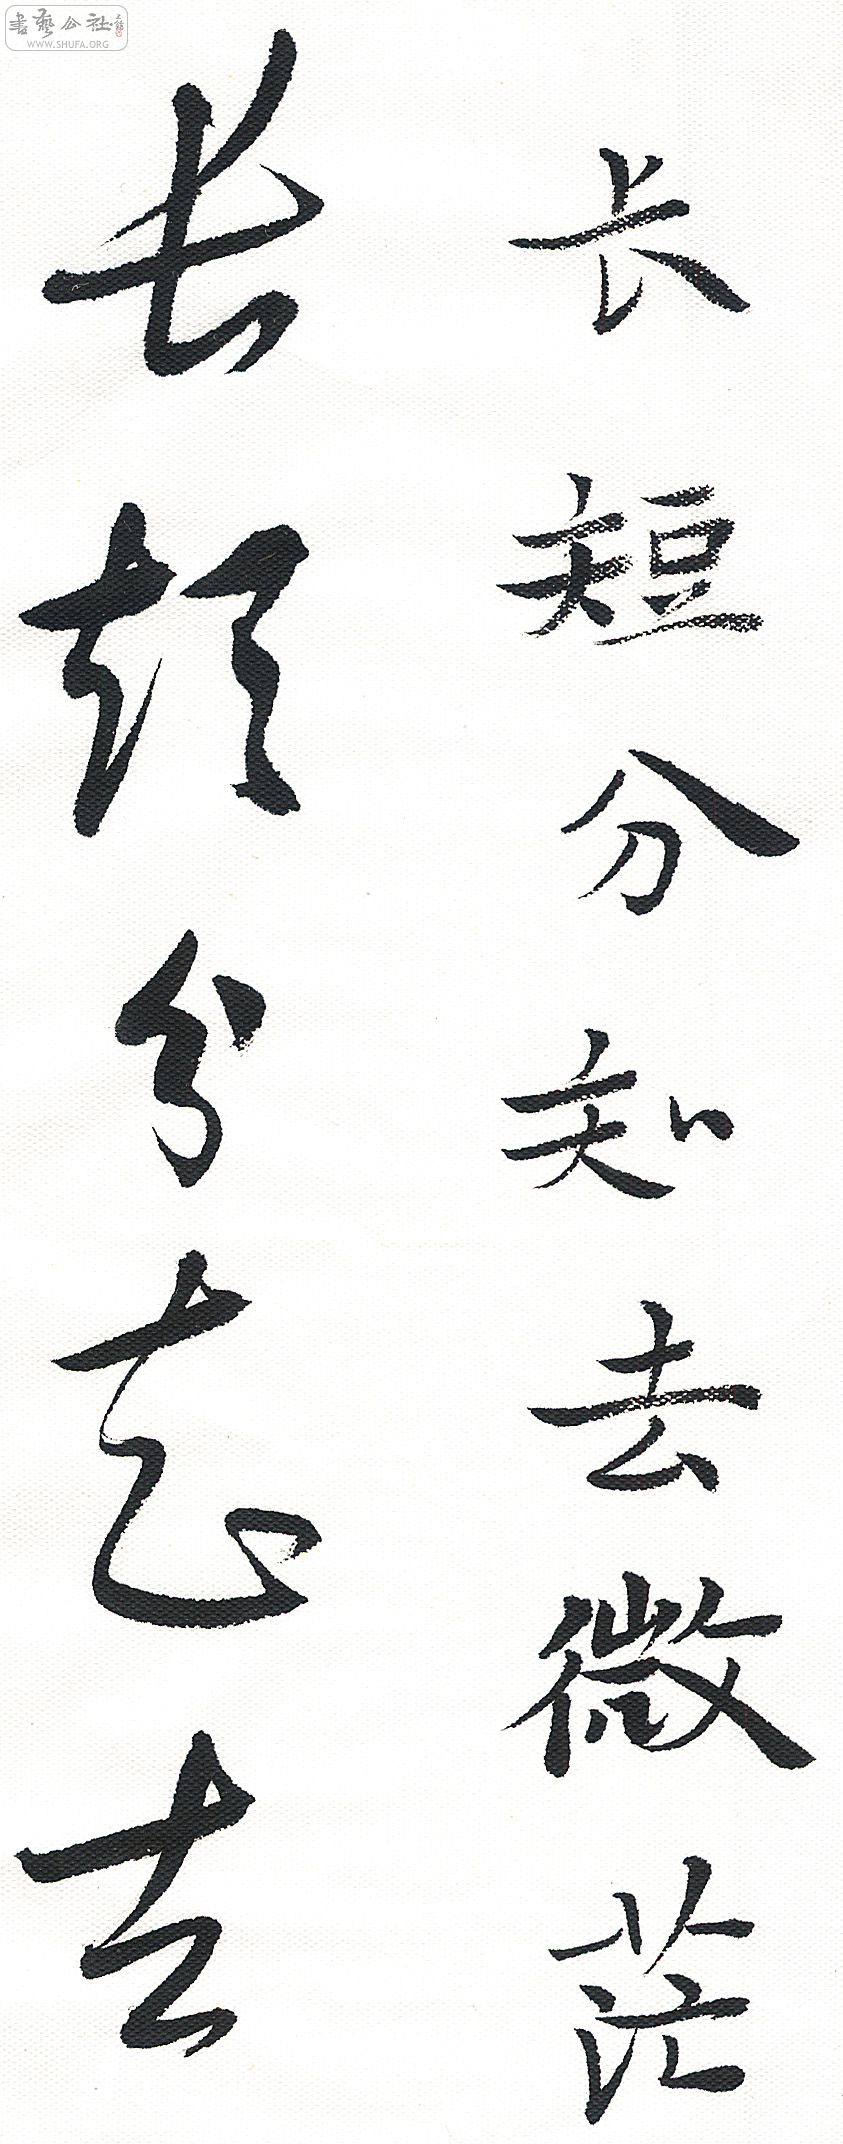 書藝公社
WWW.SHUFA.ORG
长短分知去微茫
长短分知去